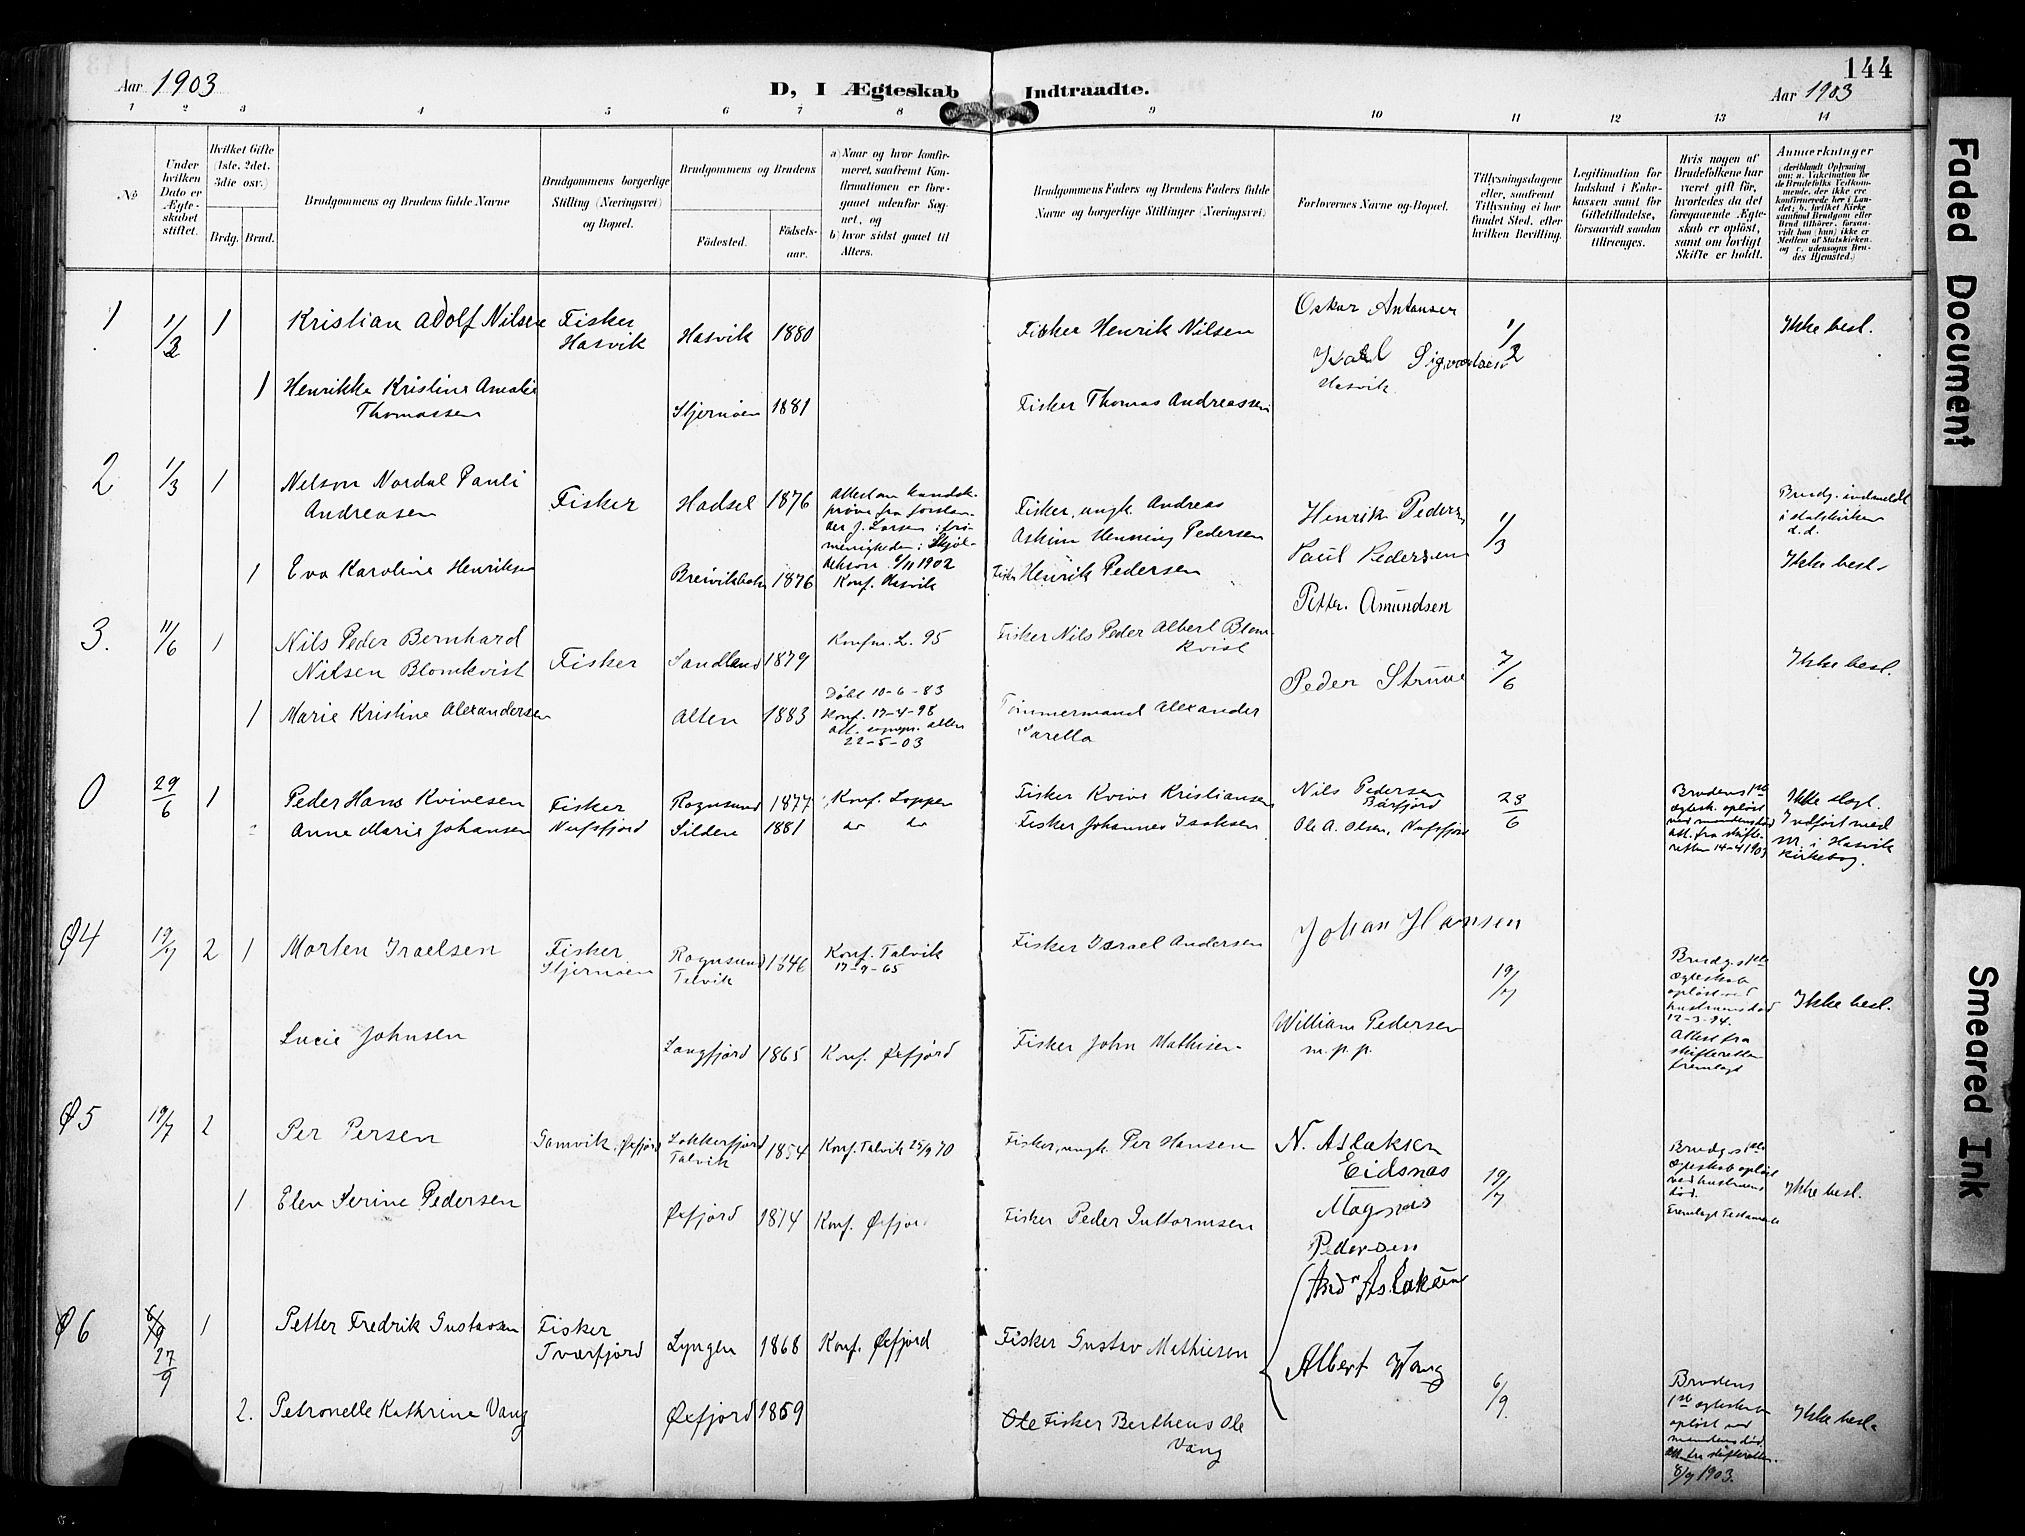 144
Aar 1903
D, I Ægteskab Indtraadte.
Aar 1903
1 2 3 4 5 6 7 8 9 10 11 12 13 14
No
Under hvilken Dato er Ægteskabet stiftet.
Hvilket Gifte (1ste, 2det, 3die osv.)
Brdg. Brud.
Brudgommens og Brudens fulde Navne
Brudgommens borgerlige Stilling (Næringsvei) og Bopæl.
Brudgommens og Brudens
Fødested.
Fødselsaar.
a) Naar og hvor konfirmeret, saafremt Konfirmationen er foregaaet udenfor Sognet, og
b) hvor sidst gaaet til Alters.
Brudgommens Faders og Brudens Faders fulde Navne og borgerlige Stillinger (Næringsvei)
Forlovernes Navne og Bopæl.
Tillysningsdagene eller, saafremt Tillysning ei har fundet Sted, efter hvilken Bevilling.
Legitimation for Indskud i Enkekassen samt for Giftetilladelse, forsaavidt saadan tiltrænges.
Hvis nogen af Brudefolkene har været gift før, hvorledes da det foregaaende Ægteskab er opløst, samt om lovligt Skifte er holdt.
Anmærkninger
(deriblandt Oplysning om: a. Vakcination for de Brudefolks Vedkommende, der ikke ere konfirmerede her i Landet; b. hvilket Kirkesamfund Brudgom eller Brud tilhører, forsaavidt han (hun) ikke er Medlem af Statskirken, og c. udensogns Brudes Hjemsted.)
1 1/3 1 Kristian Adolf Nilsen Fisker Hasvik Hasvik 1880 Fisker Henrik Nilsen Oskar Antonsen 1/2 Ikke besl.
Hasvik
1 Henrikke Kristine Amalie Thomassen Stjernøen 1881 Fisker Thomas Andreassen
2 1/3 1 Nelson Nordal Pauli Andreasen Fisker Hadsel 1876 Fisker, ungk. Andreas Askim Henning Pedersen Henrik Pedersen 1/3 Brudg. indmeldt i statskirken d.d.
6/11 1902
1 Eva Karoline Henriksen 1876 Konf. Hasvik Fisker Henrik Pedersen Paul Pedersen Ikke besl.
Petter Amundsen
3. 11/6 1 Nils Peder Bernhard Nilsen Blomkvist Fisker Sandland 1879 Konfm. L. 95 Fisker Nils Peder Albert Blomkvist Peder Struve 7/6 Ikke besl.
1 Marie Kristine Alexandersen Alten 1883 Døbt 10-6-83 Konf. 17-4-98 att. sognepr. Alten 22-5-03 Tømmermand Alexander Sarella
0 29/6 1 Peder Hans Kvivesen Fisker Nufsfjord Rognsund 1877 Konf. Loppen Fisker Kvive Kristiansen Nils Pedersen Bårfjord 28/6 Brudens 1ste ægtesk. opløst ved mandens død att. fra skifteretten 14-4 1903 Ikke slagt. Indført med nr. i Hasvik kirkebog.
Anne Marie Johansen Silden 1881 do do Fisker Johannes Isaksen Ole A. Olsen, Nufsfjord
Ø4 19/7 2 1 Morten Israelsen Fisker Stjernøen Rognsund Talvik 1846 Konf. Talvik 17-9-65 Fisker Israel Andersen Johan Hansen 19/7 Brudg.s 1ste ægteskab opløst ved hustruens død 12-3-94. Attest fra skifteretten fremlagt Ikke besl.
Lucie Johnsen Langfjord 1865 Konf. Øxfjord Fisker John Mathisen William Pedersen m.p.p.
Ø5 19/7 2 Per Persen Gamvik, Øxfjord Lokkerfjord Talvik 1854 Konf. Talvik 25/9 70 Fisker, ungk. Per Hansen N. Aslaksen Eidsnes 19/7 Brudg.s 1ste ægteskab opløst ved hustruens død. Ikke besl.
1 Elen Serine Pedersen Øxfjord 1874 Konf. Øxfjord Fisker Peder Guttormsen Magnus Pedersen
Ø6 6/9 27/9 1 Petter Fredrik Gustavsen Fisker Tværfjord Lyngen 1868 Konf. Øxfjord Fisker Gustav Mathiesen Andr Aslaksen 6/9.
2. Petronelle Kathrine Vang Øxfjord 1869 Ole Fisker Berthens Ole Vang Albert Wang Brudens 1ste ægteskab opløst ved mandens død. att. fra skifteretten. 8/9 1903. Ikke besl.
Faded Document
Smeared Ink